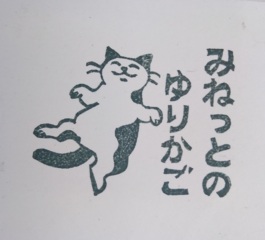 みねっとの
ゆりかご